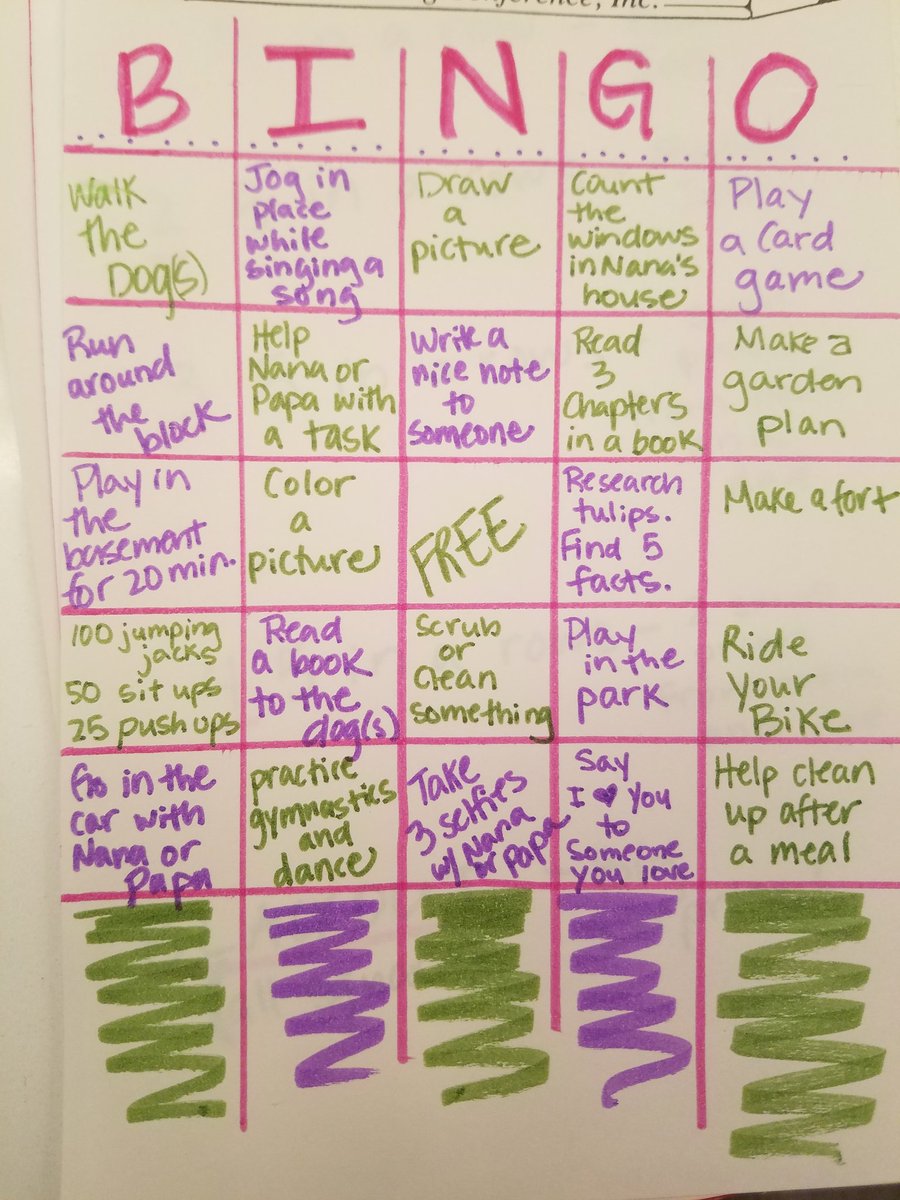 Conference, Inc.
B I N G O
Walk
the
Dog(s)
Jog in
place
while
singing a
song
Draw
a
picture
Count
the
windows
in Nana's
house
Play
a Card
game
Run
around
the
block
Help
Nana or
Papa with
a task
Write a
nice note
to
someone
Read
3
Chapters
in a book
Make a
garden
plan
Play in
the
basement
for 20 min.
Color
a
picture
FREE
Research
tulips.
Find 5
facts.
Make a fort
100 jumping
jacks
50 sit ups
25 push ups
Read
a book
to the
dog(s)
Scrub
or
Clean
something
Play
in the
park
Ride
Your
Bike
Go in the
car with
Nana or
Papa
practice
gymnastics
and
dance
Take
3 selfies
w/ Nana
or papa
Say
I ♥ You
to
Someone
you love
Help clean
up after
a meal